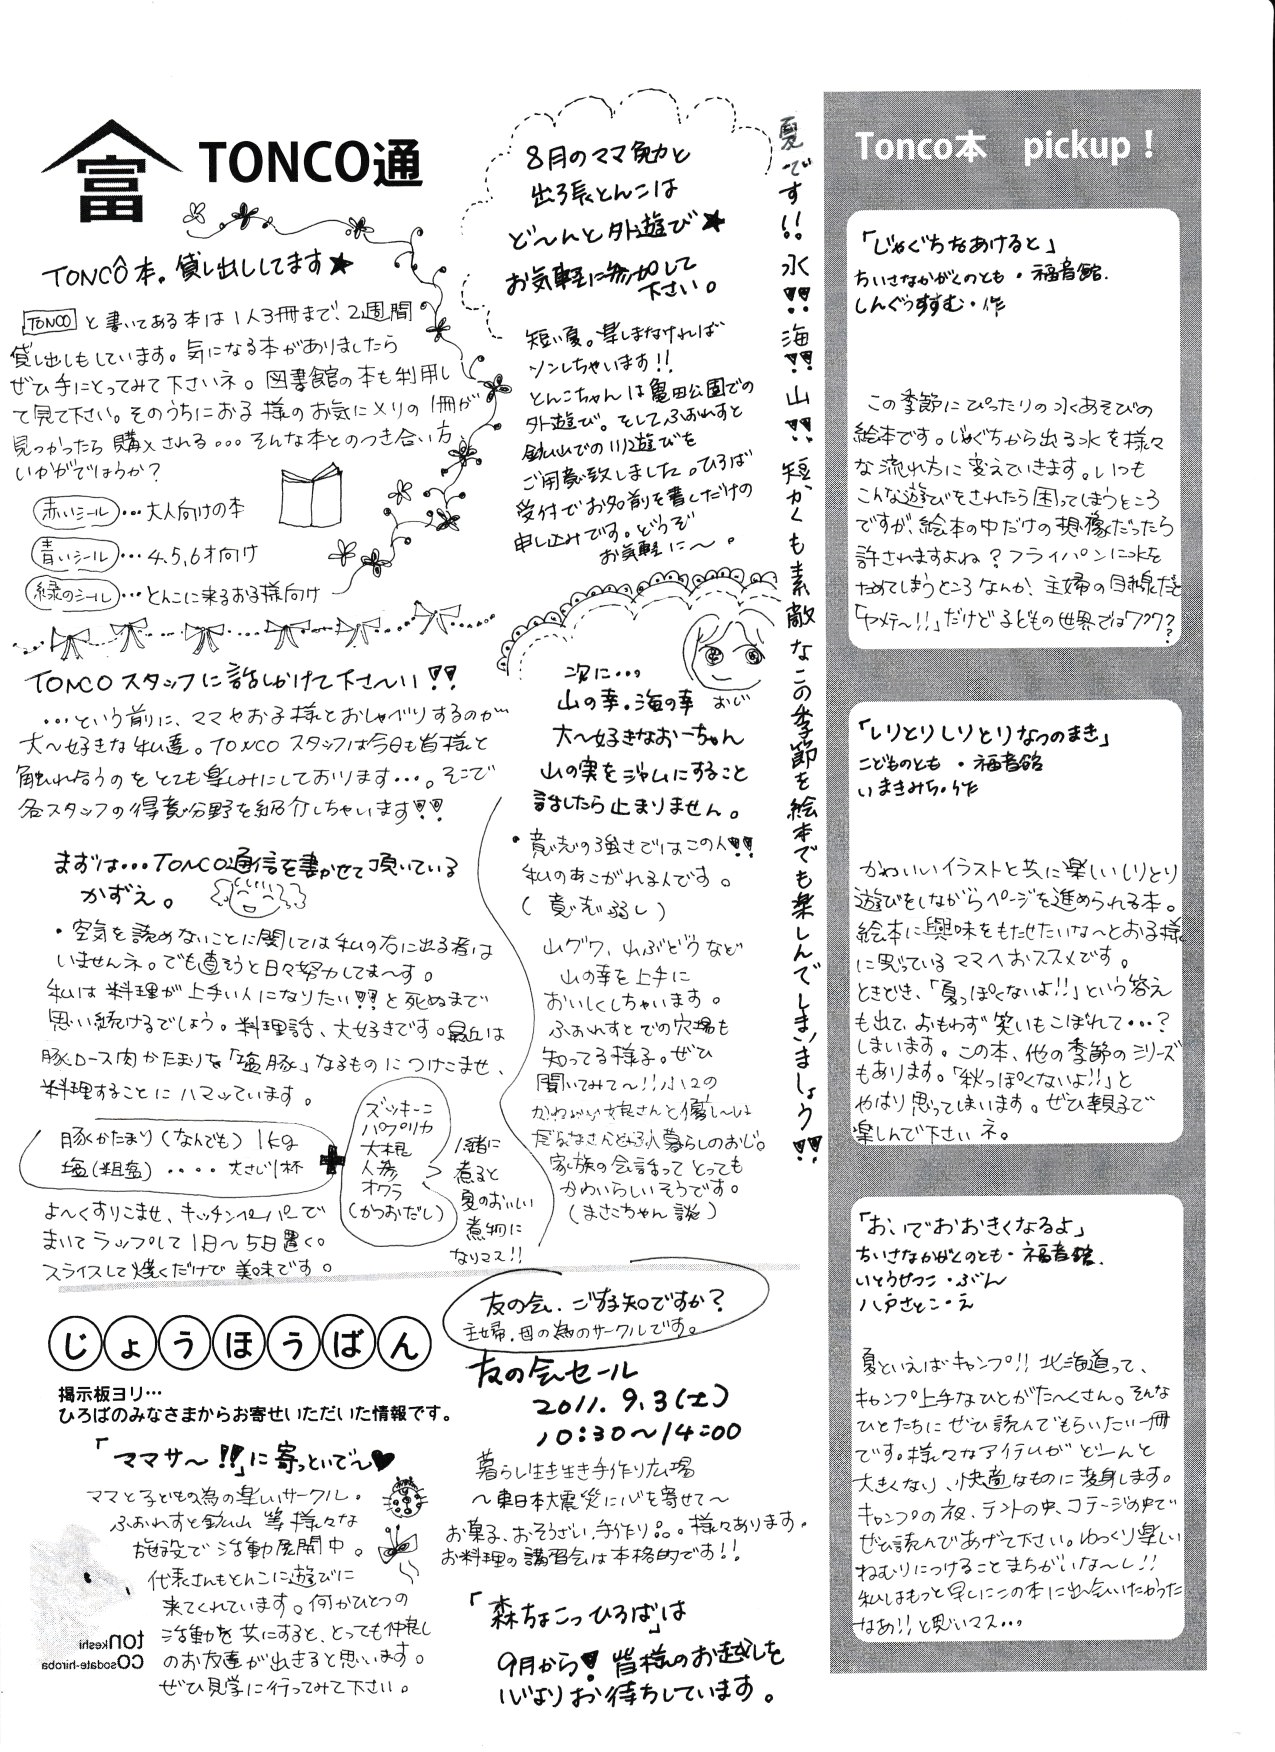 富
TONCO通
TONCO本。貸し出ししてます★
TONCO と書いてある本は1人3冊まで、2週間
貸し出しもしています。気になる本がありましたら
ぜひ手にとってみて下さいネ。図書館の本も利用し
て見て下さい。そのうちにお子様のお気に入りの1冊が
見つかったら購入される…そんな本とのつき合い方、
いかがでしょうか？
赤いシール…大人向けの本
青いシール…4,5,6才向け
緑のシール…とんこに来るお子様向け
TONCOスタッフに話しかけて下さ〜い!!
…という前に、ママやお子様とおしゃべりするのが
大〜好きな私達。TONCOスタッフは今日も皆様と
触れ合うのをとても楽しみにしております…。そこで
各スタッフの得意分野を紹介しちゃいます!!
まずは…TONCO通信を書かせて頂いている
かずえ。
・空気を読めないことに関しては私の右に出る者は
いませんネ。でも直そうと日々努力してま〜す。
私は料理が上手い人になりたい!!と死ぬまで
思い続けるでしょう。料理話、大好きです。最近は
豚ロース肉かたまりを「塩豚」なるものにつけこませ、
料理することにハマッています。
豚かたまり(なんでも) 1kg
塩(粗塩)････大さじ1杯
+
ズッキーニ
パプリカ
大根
人参
オクラ
(かつおだし)
一緒に
煮ると
夏のおいしい
煮物に
なりマス!!
よ〜くすりこませ、キッチンペーパーで
まいてラップして1日〜5日置く。
スライスして焼くだけで美味です。
8月のママ勉と
出張とんこは
ど〜んと外遊び★
お気軽に参加して
下さい。
短い夏。楽しまなければ
ソンしちゃいます!!
とんこちゃんは亀田公園での
外遊び。そしてふぉれすと
鉱山での川遊びを
ご用意致しました。ひろば
受付でお名前を書くだけの
申し込みです。どうぞ
お気軽に〜。
次に…
山の幸。海の幸
おじ
大〜好きなおーちゃん
山の実をジャムにすること
話したら止まりません。
・意志の強さではこの人!!
私のあこがれる人です。
(意志弱し)
山グワ、山ぶどうなど
山の幸を上手に
おいしくしちゃいます。
ふぉれすとでの穴場も
知ってる様子。ぜひ
聞いてみて〜!!小2の
かわいい娘さんと優し〜い
だんなさんと3人暮らしのおじ。
家族の会話ってとっても
かわいらしいそうです。
(まさこちゃん談)
夏です!!水!!海!!山!!短かくも素敵なこの季節を絵本でも楽しんでしまいましょう!!
じょうほうばん
掲示板ヨリ…
ひろばのみなさまからお寄せいただいた情報です。
「ママサ〜!!」に寄っといで〜♥
ママと子どもの為の楽しいサークル。
ふぉれすと鉱山 等 様々な
施設で活動展開中。
代表さんもとんこに遊びに
来てくれています。何かひとつの
活動を共にすると、とっても仲良し
のお友達が出きると思います。
ぜひ見学に行ってみて下さい。
tonkeshi
cosodate-hiroba
友の会、ご存知ですか？
主婦、母の為のサークルです。
友の会セール
2011.9.3(土)
10:30〜14:00
暮らし生き生き手作り広場
〜東日本大震災に心を寄せて〜
お菓子、おそうざい、手作り品。様々あります。
お料理の講習会は本格的です!!
「森ちょこっひろば」は
9月から!皆様のお越しを
心よりお待ちしています。
Tonco本 pickup！
「じゃぐちをあけると」
ちいさなかがくのとも・福音館.
しんぐうすすむ・作
この季節にぴったりの水あそびの
絵本です。じゃぐちから出る水を様々
な流れ方に変えていきます。いつも
こんな遊びをされたら困ってしまうところ
ですが、絵本の中だけの想像だったら
許されますよね？フライパンに水を
ためてしまうところなんか、主婦の目線だと
「ヤメテ〜!!」だけど子どもの世界ではワクワク？
「しりとりしりとりなつのまき」
こどものとも・福音館
いまきみち・作
かわいいイラストと共に楽しいしりとり
遊びをしながらページを進められる本。
絵本に興味をもたせたいな〜とお子様
に思っているママへおススメです。
ときどき、「夏っぽくないよ!!」という答え
も出て、おもわず笑いもこぼれて…？
しまいます。この本、他の季節のシリーズ
もあります。「秋っぽくないよ!!」と
やはり思ってしまいます。ぜひ親子で
楽しんで下さいネ。
「お、いでおおきくなるよ」
ちいさなかがくのとも・福音館.
いとうせつこ・ぶん
八戸さとこ・え
夏といえばキャンプ!!北海道って、
キャンプ上手なひとがた〜くさん。そんな
ひとたちにぜひ読んでもらいたい一冊
です。様々なアイテムがど〜んと
大きくなり、快適なものに変身します。
キャンプの夜、テントの中、コテージの中で
ぜひ読んであげて下さい。ゆっくり楽しい
ねむりにつけることまちがいな〜し!!
私はもっと早くにこの本に出会いたかった
なあ!!と思いマス…